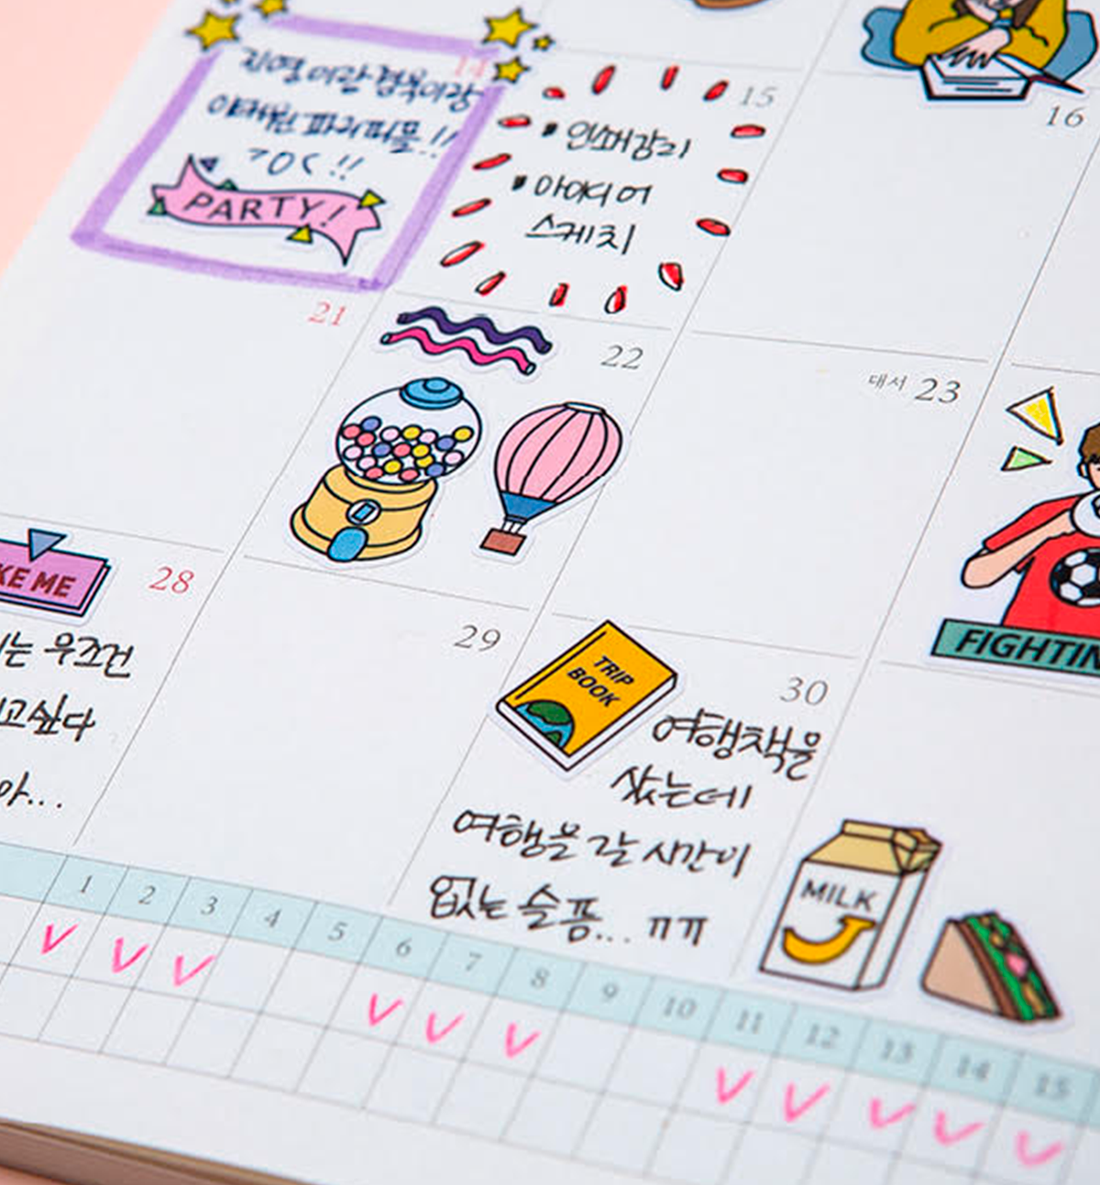 14
진영이랑 경옥이랑
이태원 피자피플!!
PARTY!
15
인쇄감리
아이디어
스케치
16
21
22
대서 23
FIGHTIN
KE ME
28
는 무조건
고싶다
아...
29
TRIP
BOOK
30
여행책을
샀는데
여행을 갈 시간이
없는 슬픔... ㅠㅠ
MILK
1 2 3 4 5 6 7 8 9 10 11 12 13 14 15
V V V V V V V V V V V